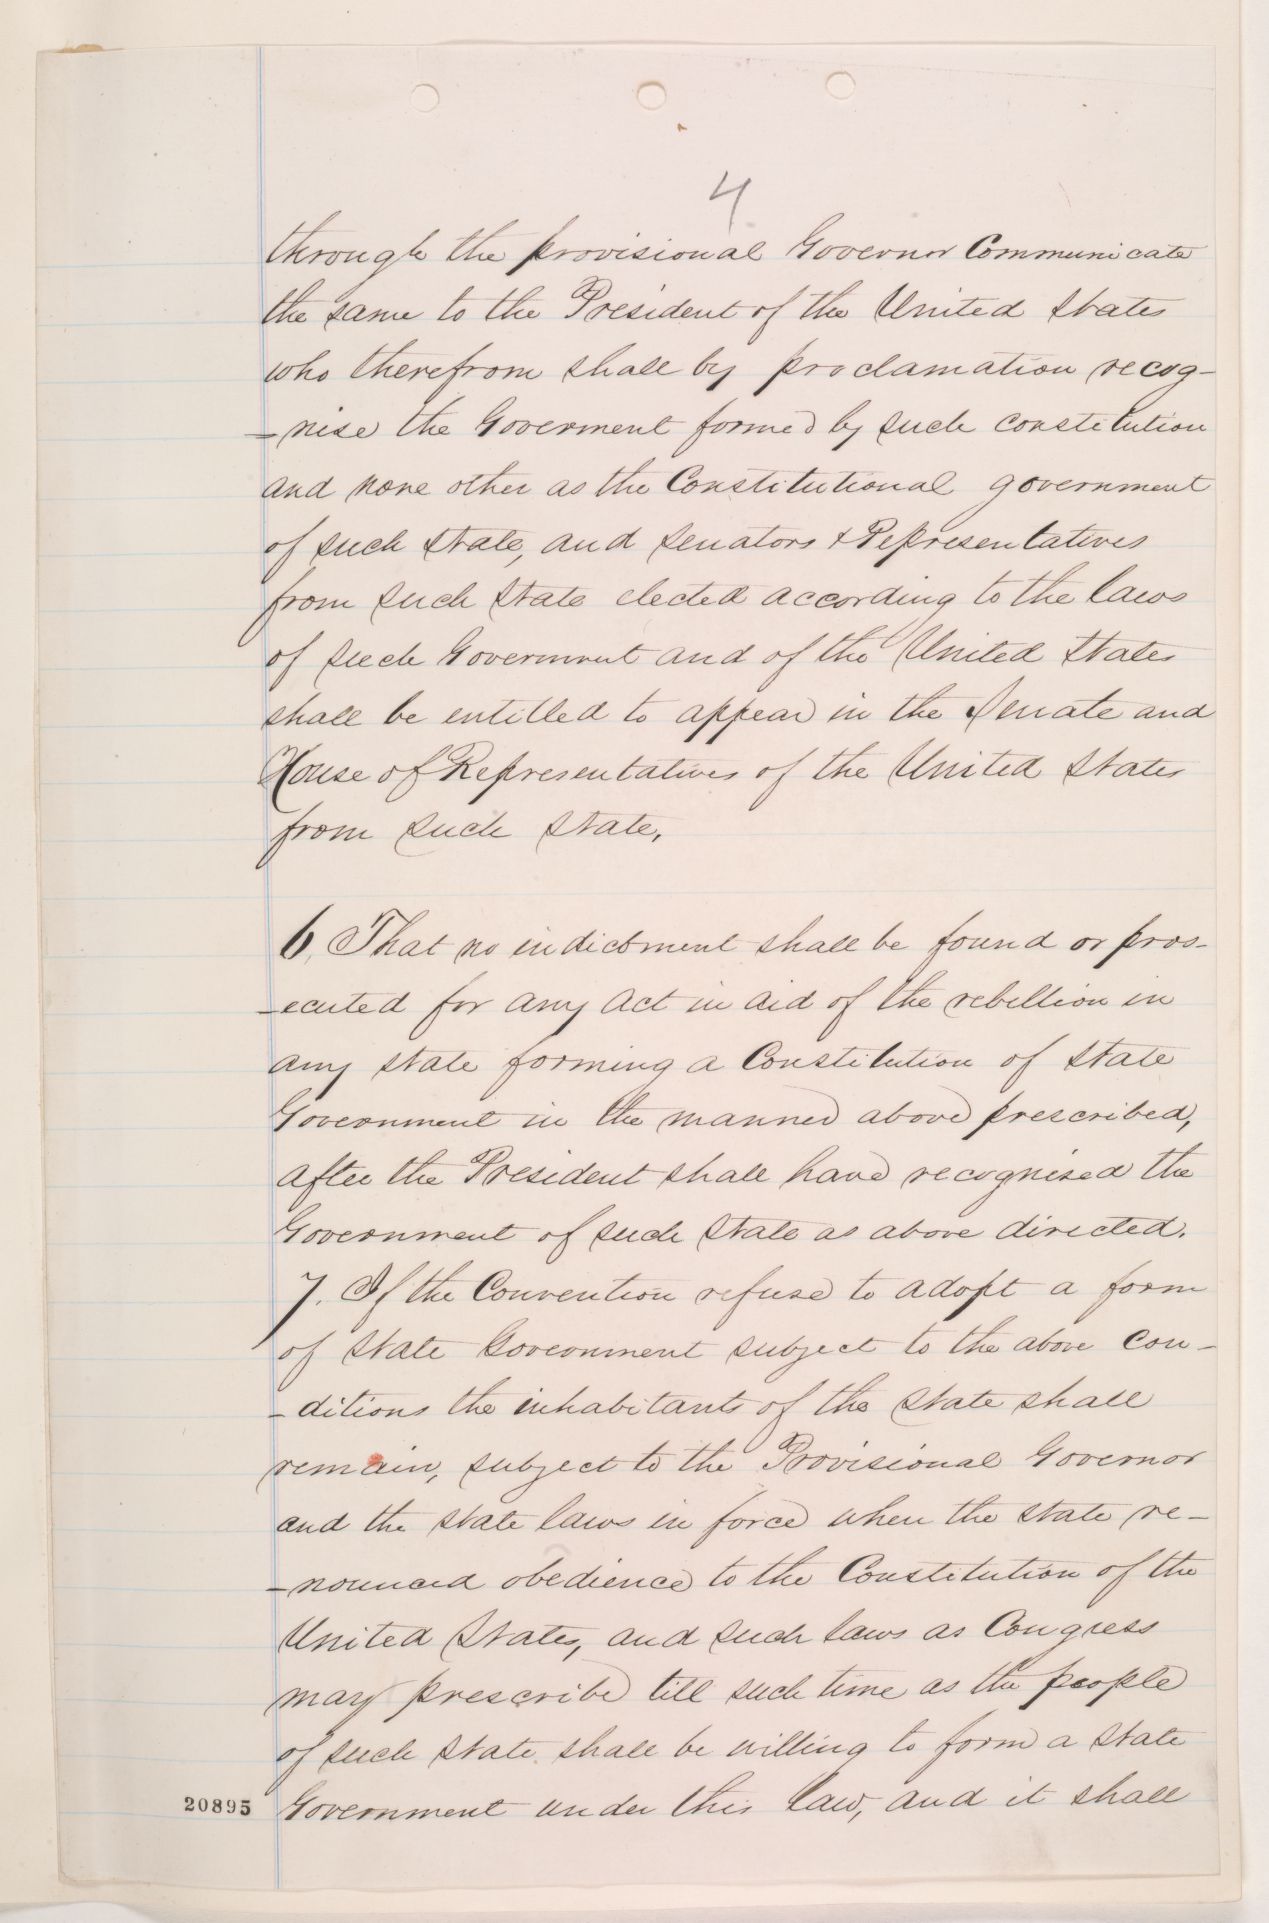 4
through the provisional Governor Communicate
the same to the President of the United States
who therefrom shall by proclamation recog-
-nise the Goverment formed by such constitution
and none other as the Constitutional government
of such state, and senators & Representatives
from such State elected according to the laws
of such Goverment and of the United States
shall be entitled to appear in the Senate and
House of Representatives of the United States
from such state.
6. That no indictment shall be found or pros-
-ecuted for any act in aid of the rebellion in
any state forming a Constitution of state
Government in the manner above prescribed,
after the President shall have recognised the
Government of such State as above directed.
7. If the Convention refuse to adopt a form
of state Government subject to the above con-
-ditions the inhabitants of the state shall
remain, subject to the Provisional Governor
and the state laws in force when the state re-
-nounced obedience to the Constitution of the
United States, and such laws as Congress
may prescribe till such time as the people
of such state shall be willing to form a state
20895 Government under this law, and it shall